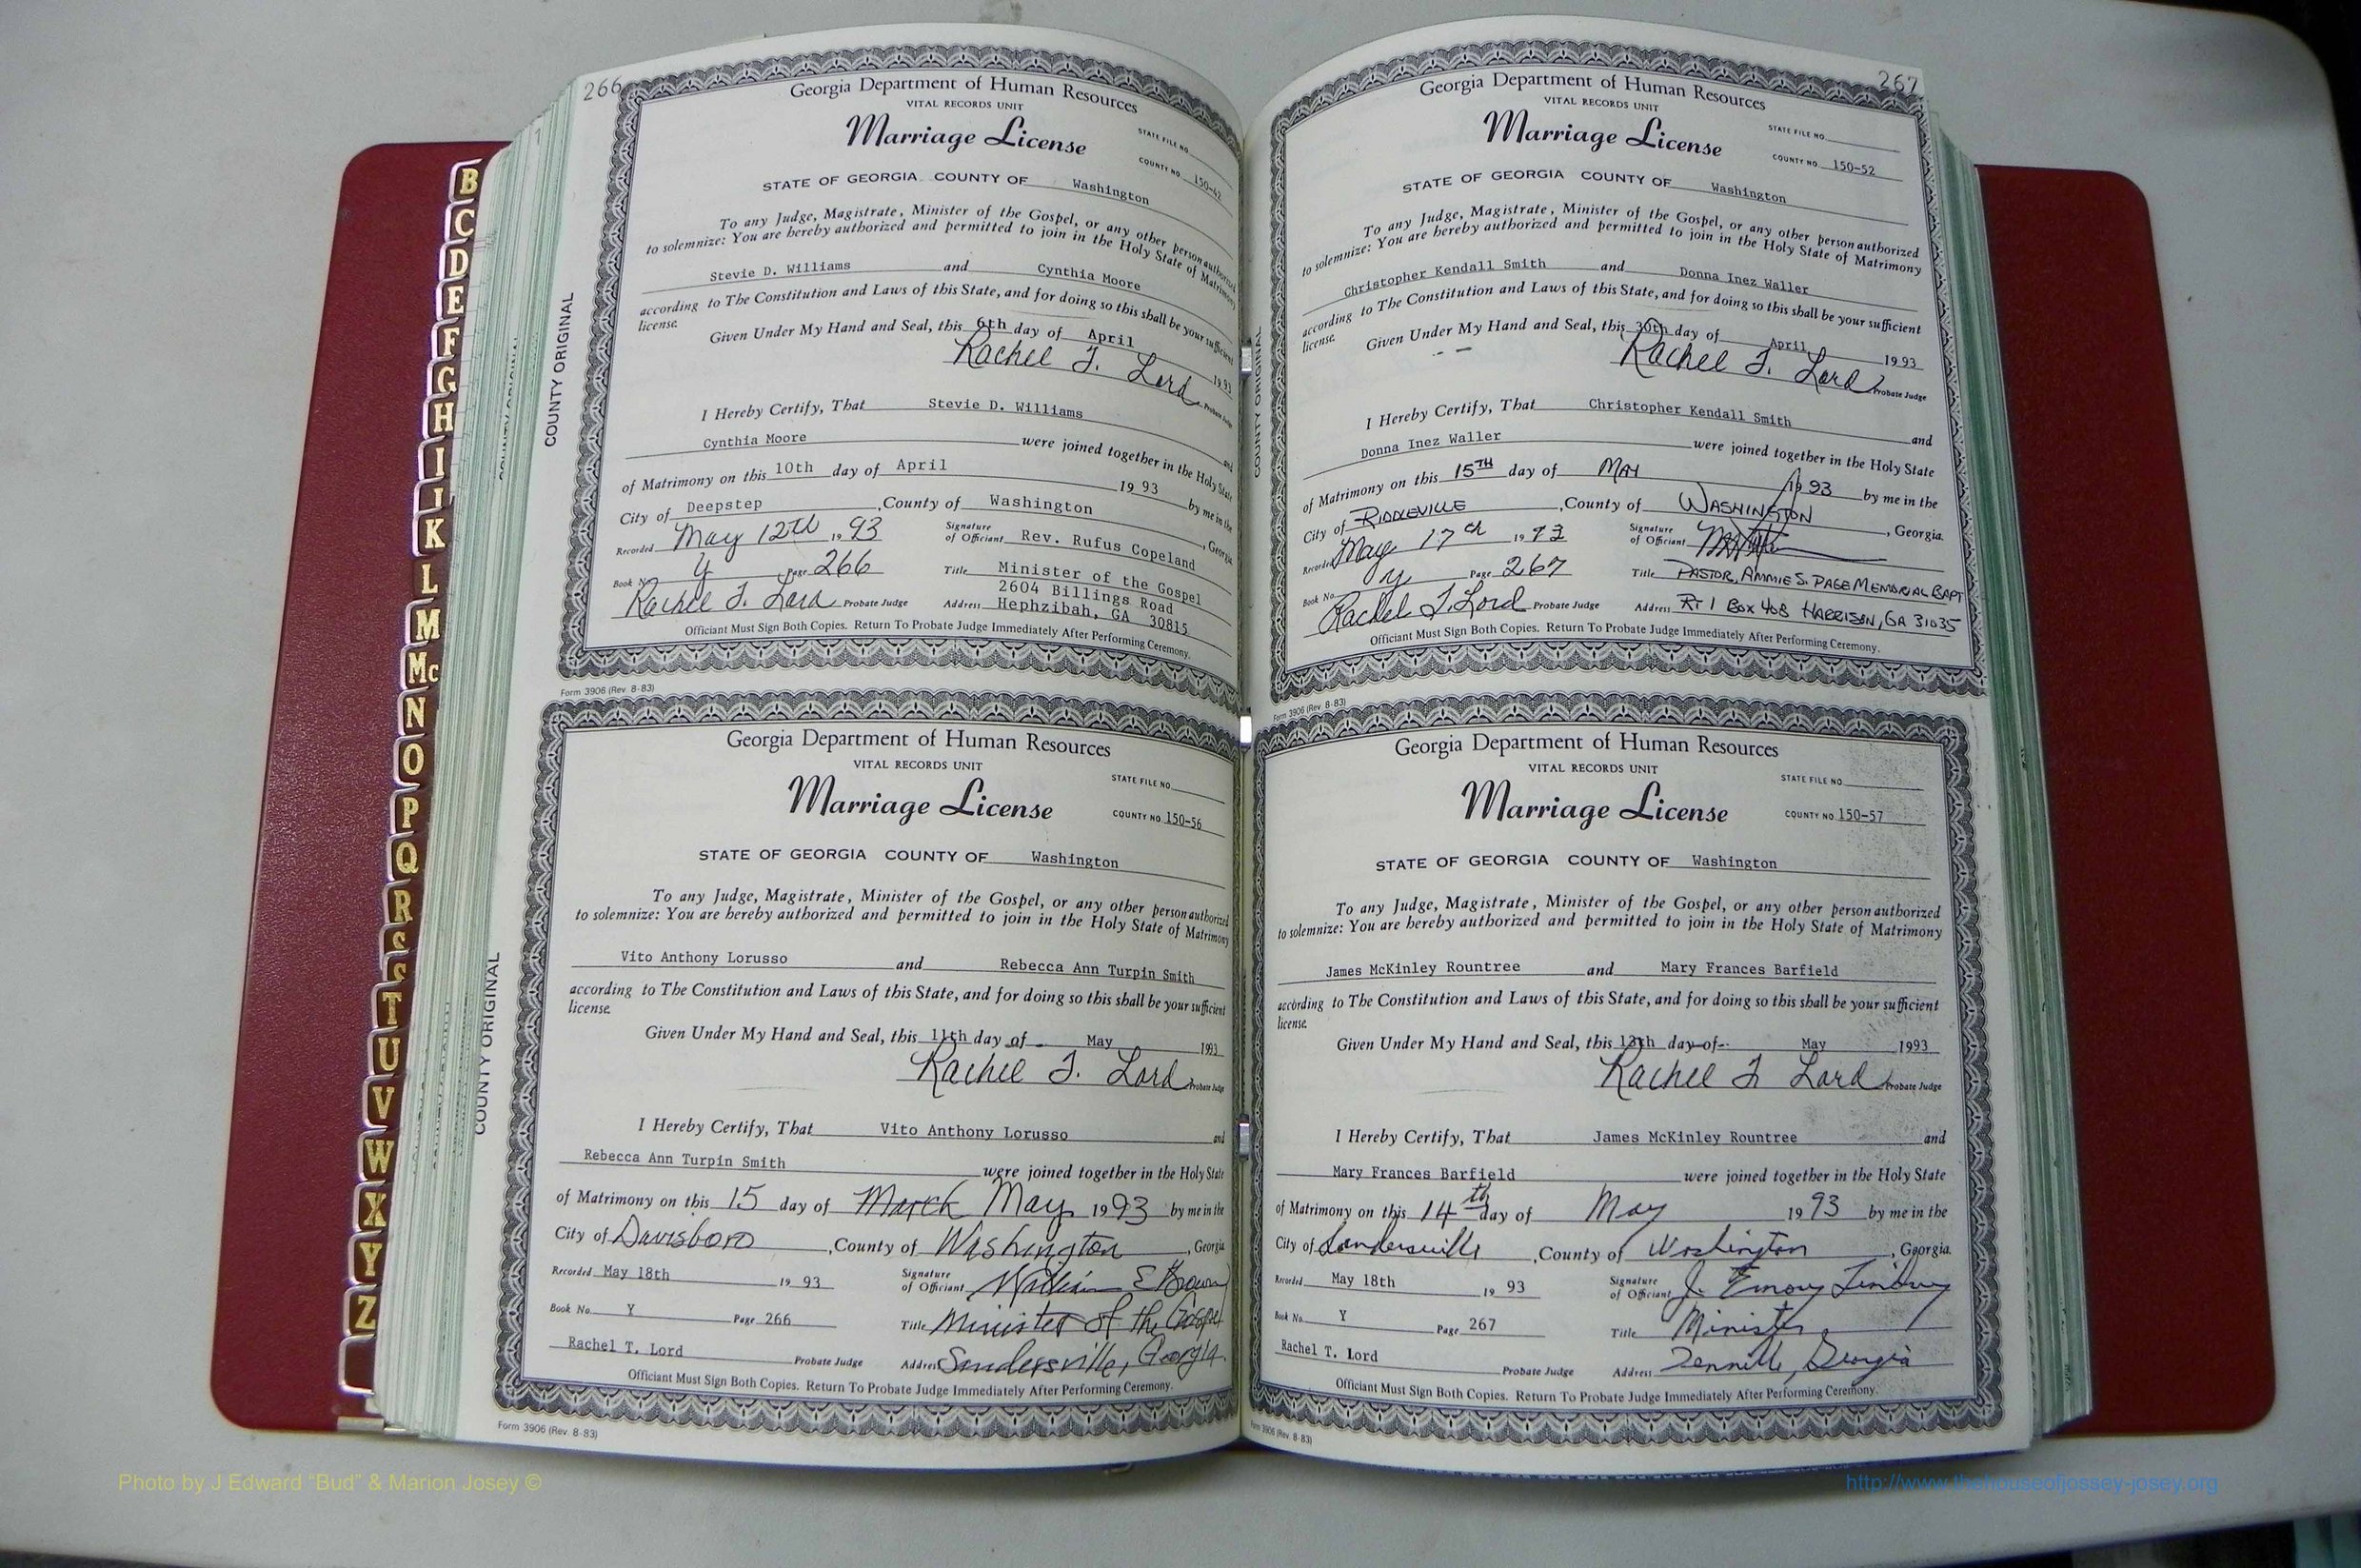 266
Georgia Department of Human Resources
VITAL RECORDS UNIT
Marriage License
STATE FILE NO.
COUNTY NO. 150-42
STATE OF GEORGIA COUNTY OF Washington
To any Judge, Magistrate, Minister of the Gospel, or any other person authorized
to solemnize: You are hereby authorized and permitted to join in the Holy State of Matrimony
Stevie D. Williams and Cynthia Moore
according to The Constitution and Laws of this State, and for doing so this shall be your sufficient
license.
Given Under My Hand and Seal, this 6th day of April 1993
Rachel T. Lord Probate Judge
I Hereby Certify, That Stevie D. Williams and
Cynthia Moore were joined together in the Holy State
of Matrimony on this 10th day of April 1993 by me in the
City of Deepstep, County of Washington, Georgia
Recorded May 12th 1993
Signature of Officiant Rev. Rufus Copeland
Book No. Y Page 266
Title Minister of the Gospel
2604 Billings Road
Rachel T. Lord Probate Judge
Address Hephzibah, GA 30815
Officiant Must Sign Both Copies. Return To Probate Judge Immediately After Performing Ceremony.
Form 3906 (Rev. 8-83)
COUNTY ORIGINAL
267
Georgia Department of Human Resources
VITAL RECORDS UNIT
Marriage License
STATE FILE NO.
COUNTY NO. 150-52
STATE OF GEORGIA COUNTY OF Washington
To any Judge, Magistrate, Minister of the Gospel, or any other person authorized
to solemnize: You are hereby authorized and permitted to join in the Holy State of Matrimony
Christopher Kendall Smith and Donna Inez Waller
according to The Constitution and Laws of this State, and for doing so this shall be your sufficient
license.
Given Under My Hand and Seal, this 30th day of April 1993
Rachel T. Lord Probate Judge
I Hereby Certify, That Christopher Kendall Smith and
Donna Inez Waller were joined together in the Holy State
of Matrimony on this 15TH day of MAY 1993 by me in the
City of RIDDLEVILLE, County of WASHINGTON, Georgia.
Recorded May 17th 1993
Signature of Officiant
Book No. Y Page 267
Title PASTOR, AMMIE S. PAGE MEMORIAL BAPT
Rachel T. Lord Probate Judge
Address RT 1 BOX 408 HARRISON, GA 31035
Officiant Must Sign Both Copies. Return To Probate Judge Immediately After Performing Ceremony.
Form 3906 (Rev. 8-83)
COUNTY ORIGINAL
Georgia Department of Human Resources
VITAL RECORDS UNIT
Marriage License
STATE FILE NO.
COUNTY NO. 150-56
STATE OF GEORGIA COUNTY OF Washington
To any Judge, Magistrate, Minister of the Gospel, or any other person authorized
to solemnize: You are hereby authorized and permitted to join in the Holy State of Matrimony
Vito Anthony Lorusso and Rebecca Ann Turpin Smith
according to The Constitution and Laws of this State, and for doing so this shall be your sufficient
license.
Given Under My Hand and Seal, this 11th day of May 1993
Rachel T. Lord Probate Judge
I Hereby Certify, That Vito Anthony Lorusso and
Rebecca Ann Turpin Smith were joined together in the Holy State
of Matrimony on this 15 day of March May 1993 by me in the
City of Davisboro, County of Washington, Georgia
Recorded May 18th 1993
Signature of Officiant William E Brown
Book No. Y Page 266
Title Minister of the Gospel
Rachel T. Lord Probate Judge
Address Sandersville, Georgia.
Officiant Must Sign Both Copies. Return To Probate Judge Immediately After Performing Ceremony.
Form 3906 (Rev. 8-83)
COUNTY ORIGINAL
Georgia Department of Human Resources
VITAL RECORDS UNIT
Marriage License
STATE FILE NO.
COUNTY NO. 150-57
STATE OF GEORGIA COUNTY OF Washington
To any Judge, Magistrate, Minister of the Gospel, or any other person authorized
to solemnize: You are hereby authorized and permitted to join in the Holy State of Matrimony
James McKinley Rountree and Mary Frances Barfield
according to The Constitution and Laws of this State, and for doing so this shall be your sufficient
license.
Given Under My Hand and Seal, this 13th day of May 1993
Rachel T. Lord Probate Judge
I Hereby Certify, That James McKinley Rountree and
Mary Frances Barfield were joined together in the Holy State
of Matrimony on this 14th day of May 1993 by me in the
City of Sandersville, County of Washington, Georgia.
Recorded May 18th 1993
Signature of Officiant J. Emory
Book No. Y Page 267
Title Minister
Rachel T. Lord Probate Judge
Address Tennille, Georgia
Officiant Must Sign Both Copies. Return To Probate Judge Immediately After Performing Ceremony.
Form 3906 (Rev. 8-83)
B
C
D
E
F
G
H
I
J
K
L
M
Mc
N
O
P
Q
R
S
S
T
U
V
W
X
Y
Z
Photo by J Edward “Bud” & Marion Josey ©
http://www.thehouseofjossey-josey.org